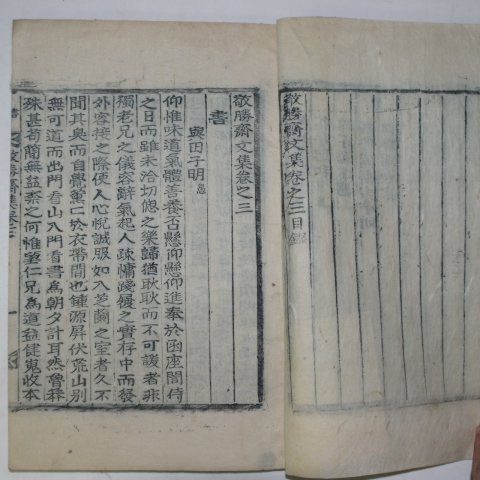 敬勝齋文集卷之三目錄
敬勝齋文集卷之三
書
與田子明
仰惟味道氣體善養否懸仰懸仰進奉於函座閤侍
之日而雖未洽切偲之樂歸猶耿耿而不可諼者非
獨老兄之儀容辭氣起人疎慵踐履之實存中而發
外容接之際使人心悅誠服如入芝蘭之室者久不
聞其臭而自覺薰
於衣帶間也鍾源屛伏
山別
無可道而出門看山入門看書爲朝夕計耳然魯莽
殊甚苟簡無益柰之何惟望仁兄爲道益健嵬收本